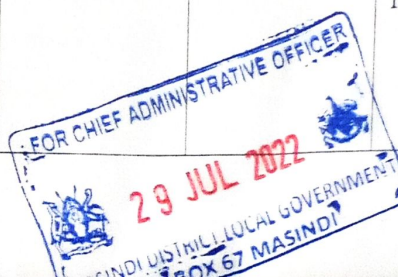 FOR CHIEF ADMINISTRATIVE OFFICER
29 JUL 2022
MASINDI DISTRICT LOCAL GOVERNMENT
BOX 67 MASINDI